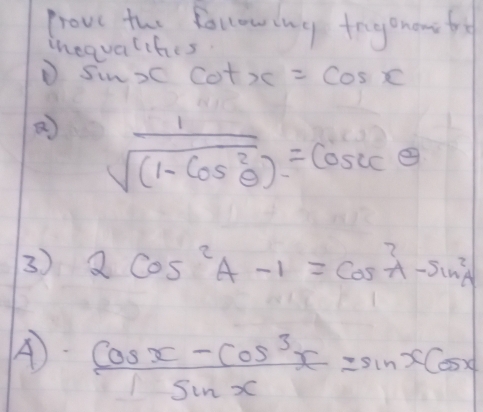 Prove the following trigonometric
inequalities.
1) sin x cot x = cos x
2) 1/√(1 - cos²θ) = Cosec θ
3) 2 cos²A - 1 = cos²A - sin²A
4) (cos x - cos³x)/sin x = sin x cos x